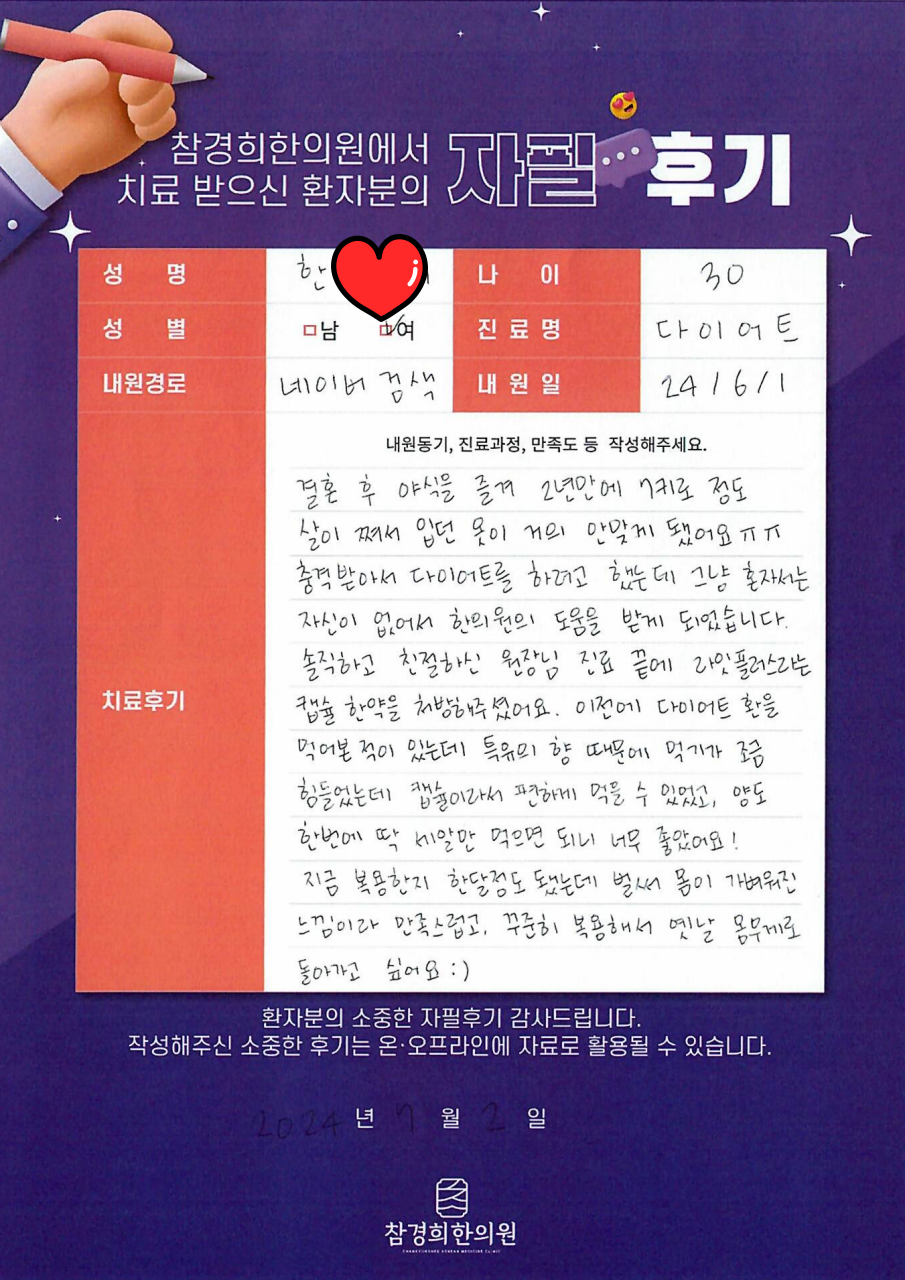 참경희한의원에서
치료 받으신 환자분의
자필 후기
성 명 한 나 이 30
성 별 남 여 진료명 다이어트
내원경로 네이버 검색 내원일 24/6/1
내원동기, 진료과정, 만족도 등 작성해주세요.
치료후기
결혼 후 야식을 즐겨 2년만에 7키로 정도
살이 쪄서 입던 옷이 거의 안맞게 됐어요ㅠㅠ
충격받아서 다이어트를 하려고 했는데 그냥 혼자서는
자신이 없어서 한의원의 도움을 받게 되었습니다.
솔직하고 친절하신 원장님 진료 끝에 라잇플러스라는
캡슐 한약을 처방해주셨어요. 이전에 다이어트 환을
먹어본적이 있는데 특유의 향 때문에 먹기가 조금
힘들었는데 캡슐이라서 편하게 먹을 수 있었고, 양도
한번에 딱 세알만 먹으면 되니 너무 좋았어요!
지금 복용한지 한달정도 됐는데 벌써 몸이 가벼워진
느낌이라 만족스럽고, 꾸준히 복용해서 옛날 몸무게로
돌아가고 싶어요 :)
환자분의 소중한 자필후기 감사드립니다.
작성해주신 소중한 후기는 온·오프라인에 자료로 활용될 수 있습니다.
2024 년 7 월 2 일
참경희한의원